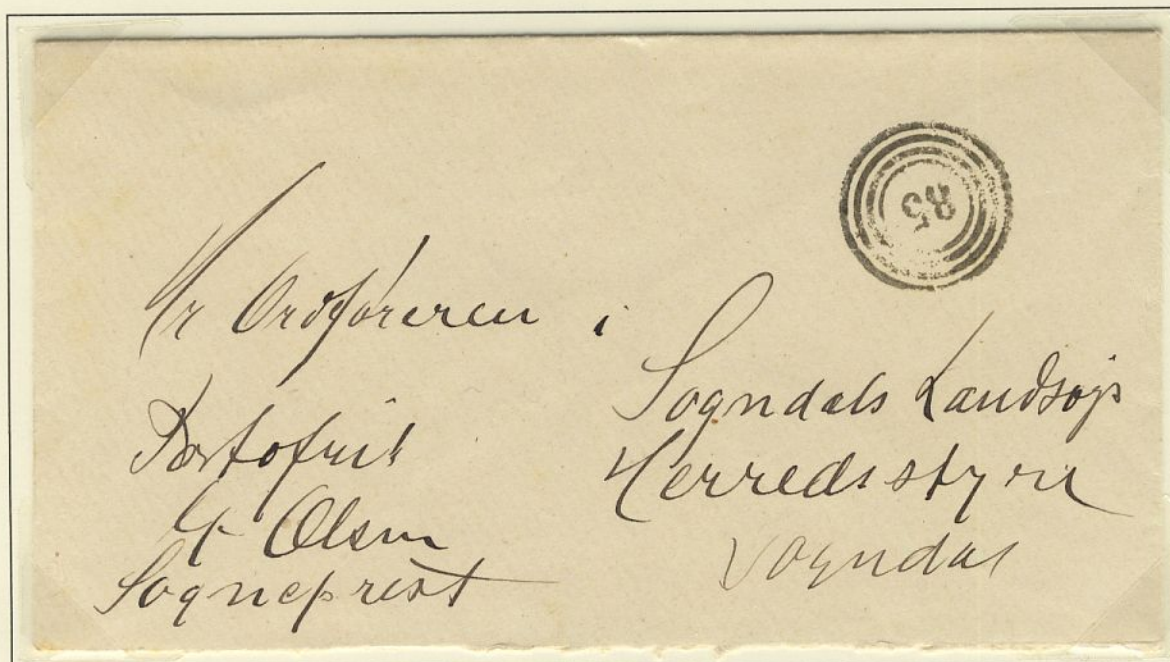 Hr Ordføreren i
Sogndals Landsogs
Herredsstyre
Sogndal
Portofrit
Olsen
Sogneprest